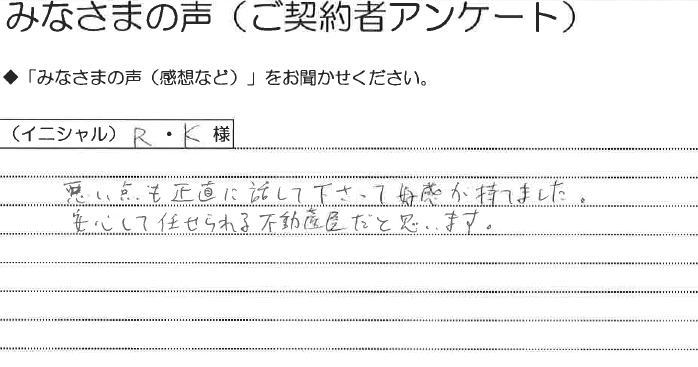 みなさまの声（ご契約者アンケート）
◆「みなさまの声（感想など）」をお聞かせください。
（イニシャル）R・K 様
悪い点も正直に話して下さって好感が持てました。
安心して任せられる不動産屋だと思います。